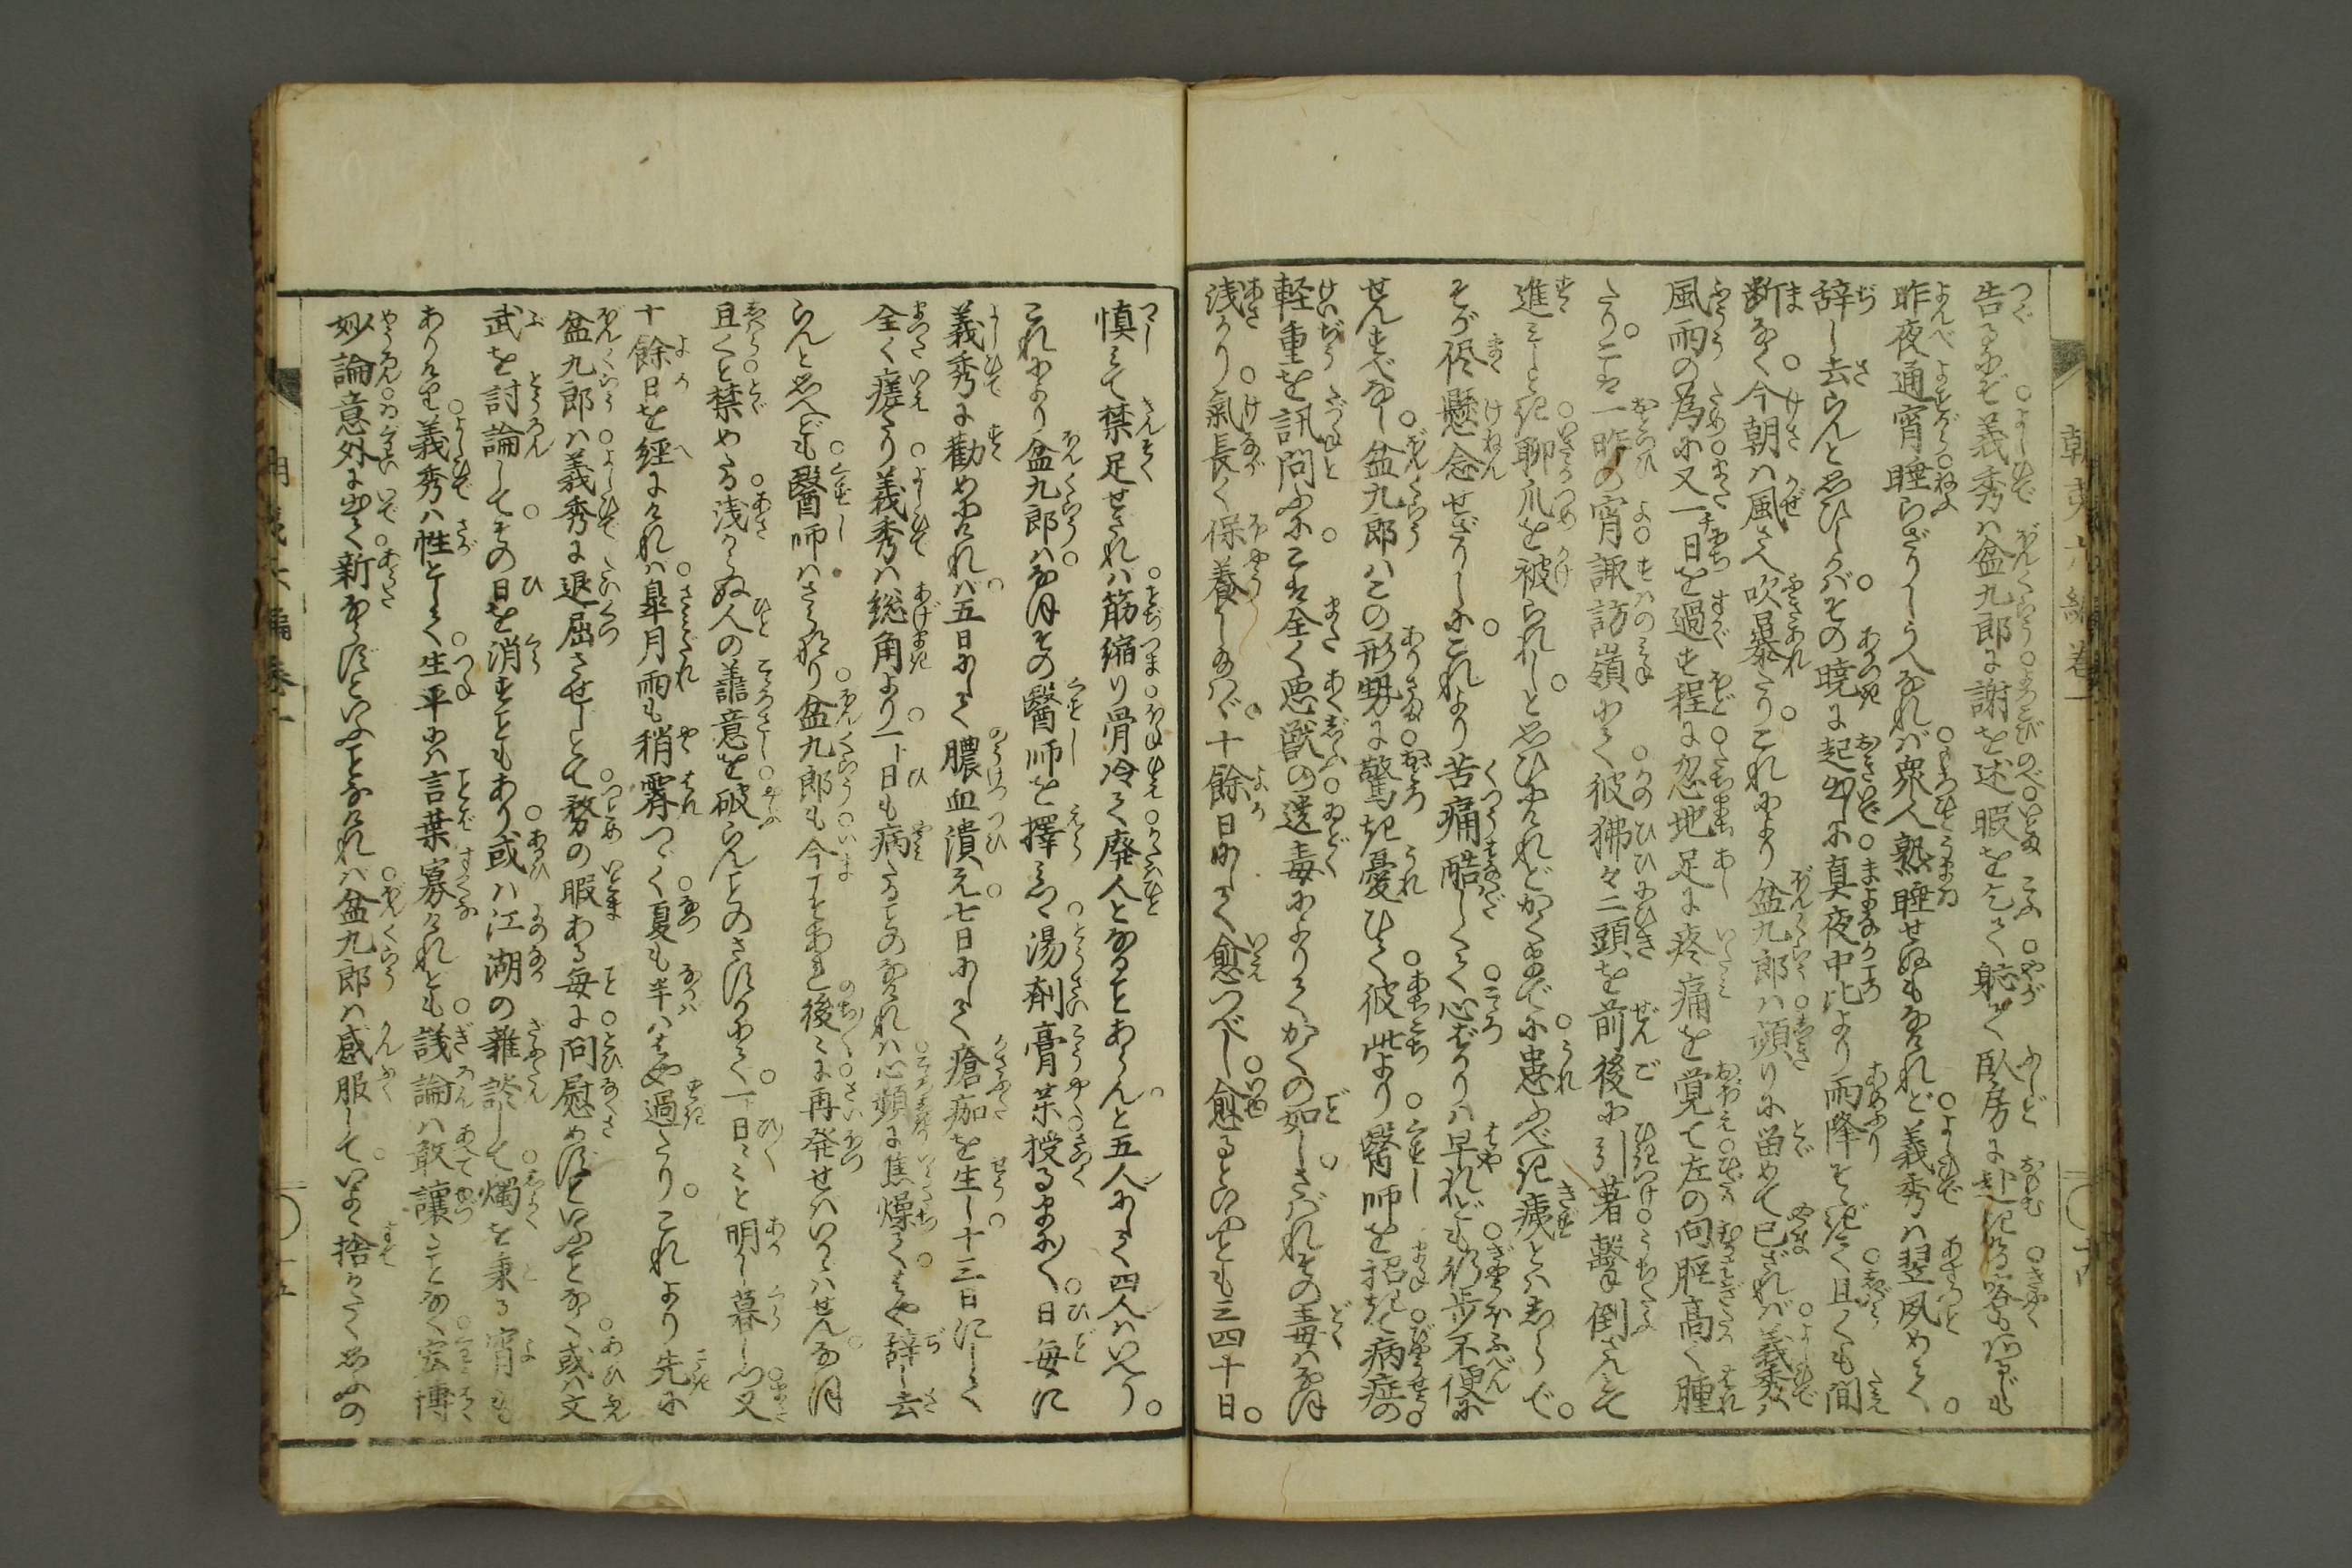 告るにぞ義秀ハ盆九郎に謝を述暇を乞て臥房に赴にける客も
昨夜通宵睡らざりし人なれバ衆人熟睡せぬもなけれど義秀ハ翌夙めて
辞し去らんと思ひしかバその暁に起出しに真夜中比より雨降そゝぎて且くも間
断なく今朝ハ風さへ吹暴たりこれにより盆九郎ハ頻りに留めて已ざれバ義秀ハ
風雨の為に又一日を過す程に忽地足に疼痛を覚て左の向脛高く腫
たりこハ一昨の宵諏訪嶺にて彼狒々二頭を前後に引著撃倒さんとて
進みしとき聊爪を被られしと思ひけれどかくまでに患ふべき痍とハしらで
そが侭懸念せざりしにこれより苦痛酷しくて心ばかりハ早れども行歩不便に
せんすべなし盆九郎ハこの形勢に驚き憂ひて彼此より醫師を招き病症の
軽重を訊問ふにこハ全く悪獣の遺毒によりてかくの如しさバれその毒ハなほ
浅かり氣長く保養し給ハゞ十餘日にして愈つべし愈るといふとも三四十日
慎みて禁足せざれハ筋縮り骨冷て廃人となることあらんと五人にして四人ハいへり
これにより盆九郎ハなほその醫師を擇みつゝ湯剤膏薬授るまに〳〵日毎に
義秀に勸めけれバ五日にして膿血潰え七日にして瘡痂を生し十三日にして
全く瘥たり義秀ハ総角より一日も病たることのなけれハ心頻に焦燥てはや辞し去
らんと思へども醫師ハさらなり盆九郎も今こそあれ後々に再発せハいかゝハせんなほ
且くと禁めたる浅からぬ人の譱意を破らんことのさすかにて一日々々と明し暮しつ又
十餘日を経にけれハ皐月雨も稍霽つゝ夏も半ハはや過たりこれより先に
盆九郎ハ義秀に退屈させじとて務の暇ある毎に問慰めずといふことなく或ハ文
武を討論してその日を消すこともあり或ハ江湖の雜談して燭を秉る宵も
ありけり義秀ハ性として生平にハ言葉寡けれとも議論ハ敢讓ことなく宏博
妙論意外に出て新ならずといふことなけれバ盆九郎ハ感服していよゝ捨かたく思ふの